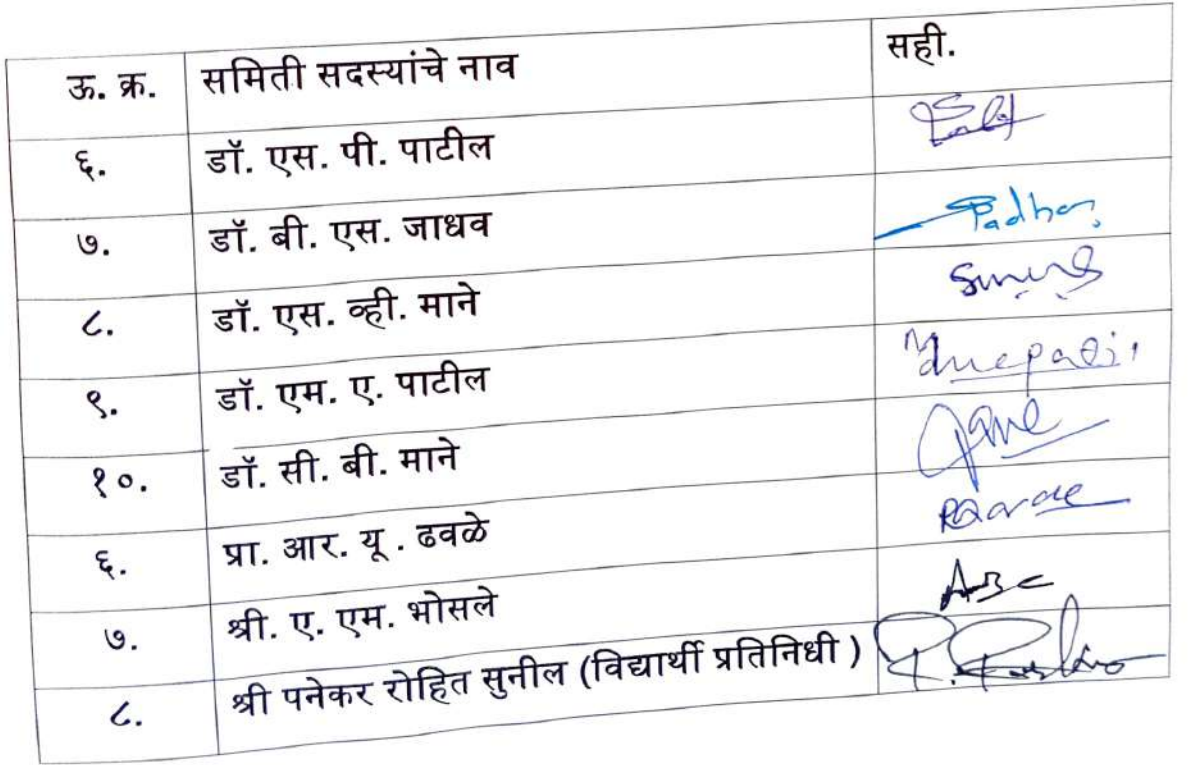 ऊ. क्र. समिती सदस्यांचे नाव सही.
६. डॉ. एस. पी. पाटील
७. डॉ. बी. एस. जाधव
८. डॉ. एस. व्ही. माने
९. डॉ. एम. ए. पाटील
१०. डॉ. सी. बी. माने
६. प्रा. आर. यू . ढवळे
७. श्री. ए. एम. भोसले
८. श्री पनेकर रोहित सुनील (विद्यार्थी प्रतिनिधी )